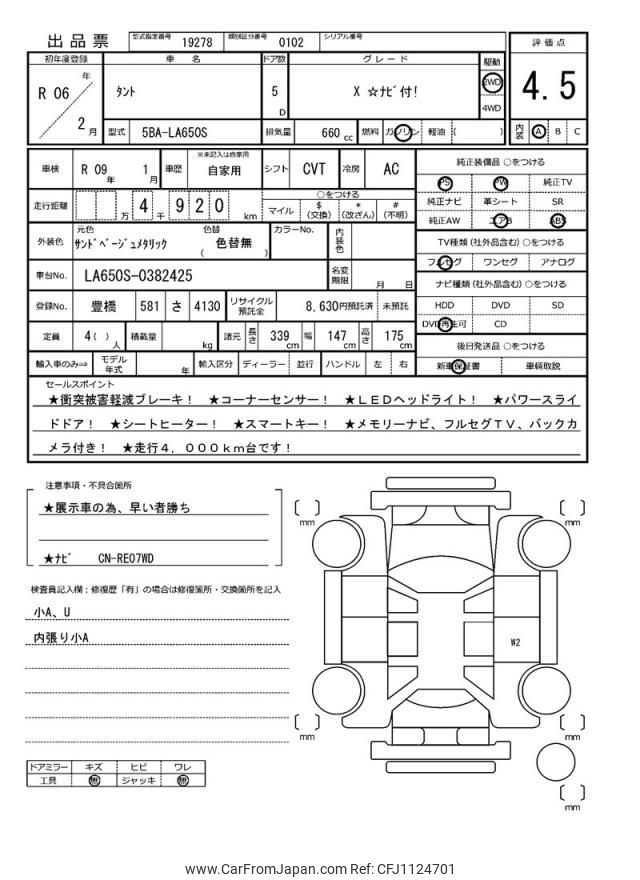 出品票 型式指定番号 19278 類別区分番号 0102 シリアル番号
初年度登録 車名 ドア数 グレード 駆動 評価点
R 06 年 2 月 タント 5 D X ☆ナビ付! 2WD 4WD 4.5
型式 5BA-LA650S 排気量 660 cc 燃料 ガソリン 軽油 ( ) 内装 A B C
車検 R 09 年 1 月 車歴 ※未記入は自家用 自家用 シフト CVT 冷房 AC
純正装備品 ○をつける
PS PW 純正TV
走行距離 万 4 千 9 2 0 km ○をつける
マイル $ (交換) * (改ざん) # (不明)
純正ナビ 革シート SR
純正AW エアB ABS
外装色 元色 サンドベージュメタリック 色替 ( 色替無 ) カラーNo. 内装色
TV種類(社外品含む)○をつける
フルセグ ワンセグ アナログ
車台No. LA650S-0382425 名変期限 月 日
ナビ種類(社外品含む)○をつける
登録No. 豊橋 581 さ 4130 リサイクル預託金 8,630円預託済 未預託
HDD DVD SD
DVD再生可 CD
定員 4( )人 積載量 kg 諸元 長さ 339 cm 幅 147 cm 高さ 175 cm
後日発送品 ○をつける
輸入車のみ⇒ モデル年式 年 輸入区分 ディーラー 並行 ハンドル 左 右
新車保証書 車輌取説
セールスポイント
★衝突被害軽減ブレーキ! ★コーナーセンサー! ★LEDヘッドライト! ★パワースライ
ドドア! ★シートヒーター! ★スマートキー! ★メモリーナビ、フルセグTV、バックカ
メラ付き! ★走行4,000km台です!
注意事項・不具合箇所
★展示車の為、早い者勝ち
★ナビ CN-RE07WD
検査員記入欄:修復歴「有」の場合は修復箇所・交換箇所を記入
小A、U
内張り小A
W2
mm
mm
mm
mm
mm
ドアミラー キズ ヒビ ワレ
工具 無 ジャッキ 無
www.CarFromJapan.com Ref: CFJ1124701